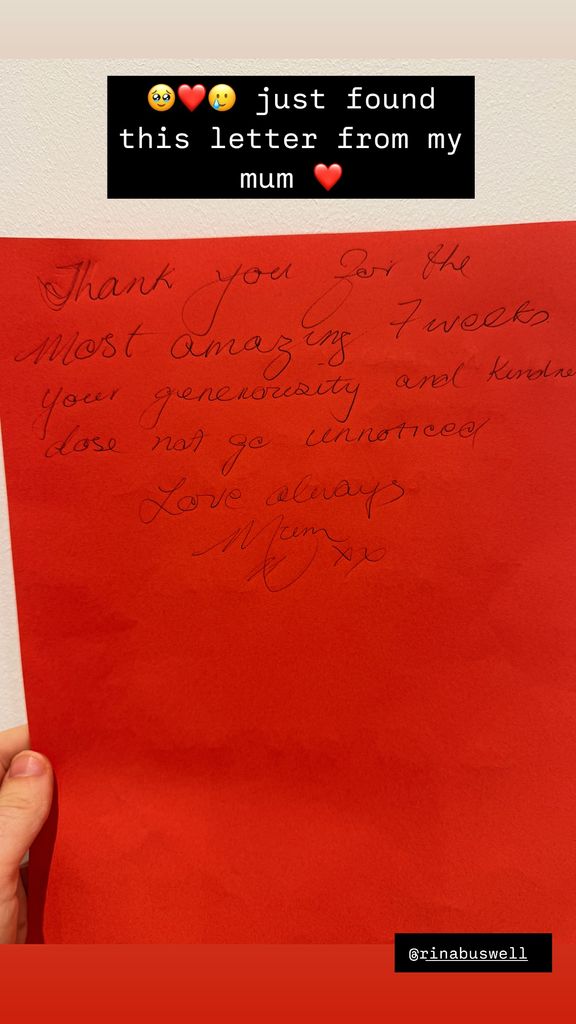 🥹❤️🥲 just found
this letter from my
mum ❤️
Thank you for the
Most amazing 7 weeks
your generousity and Kindne
dose not go unnoticed
Love always
Mum
xx
@rinabuswell